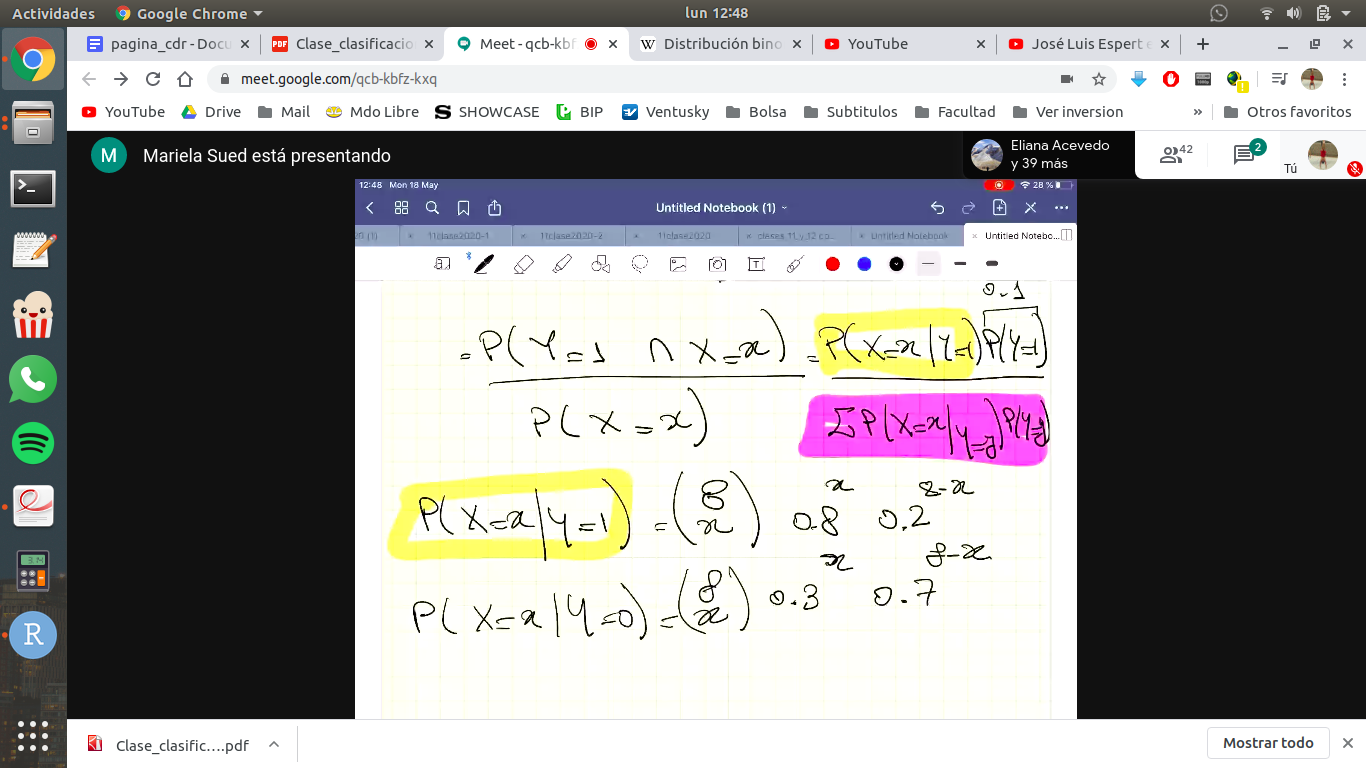 Actividades Google Chrome lun 12:48
pagina_cdr - Docu Clase_clasificacio Meet - qcb-kbf Distribución bino YouTube José Luis Espert e
meet.google.com/qcb-kbfz-kxq
YouTube Drive Mail Mdo Libre SHOWCASE BIP Ventusky Bolsa Subtitulos Facultad Ver inversion » Otros favoritos
M Mariela Sued está presentando
Eliana Acevedo
y 39 más
42 2 Tú
12:48 Mon 18 May 28 %
Untitled Notebook (1)
11clase2020-1 11clase2020-2 11clase2020 clases_11_y_12 co... Untitled Notebook Untitled Notebo...
0.1
= P(Y=1 ∩ X=x) = P(X=x|Y=1)P(Y=1)
P(X=x) ΣP(X=x|Y=y)P(Y=y)
P(X=x|Y=1) = (8 x) 0.8^x 0.2^8-x
P(X=x|Y=0) = (8 x) 0.3^x 0.7^8-x
Clase_clasific....pdf Mostrar todo